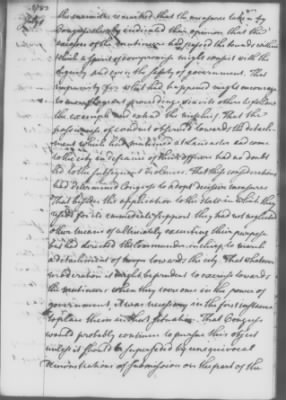 1783
July
the committee remarked that the measures taken by
Congress clearly indicated their opinion that the
excesses of the mutineers had passed the bounds within
which a spirit of compromise might comport with the
dignity and even the safety of government. That
impunity for what had happened might encourage
to more flagrant proceedings, invite others to follow
the example and extend the mischief. That the
passiveness of conduct observed towards the detach-
ment which had mutinied at Lancaster and come
to the city in defiance of their officers had no doubt
led to the subsequent violences. That these considerations
had determined Congress to adopt decisive measures
That besides the application to the state in which they
reside for its immediate support they had not neglected
other means of ultimately executing their purpose
but had directed the Commander in chief to march
a detachment of troops towards the city. That whatever
moderation it might be prudent to exercise towards
the mutineers when they were once in the power of
government, it was necessary in the first instance
to place them in that situation. That Congress
would probably continue to pursue this object
unless it should be superseded by unequivocal
demonstrations of submission on the part of the